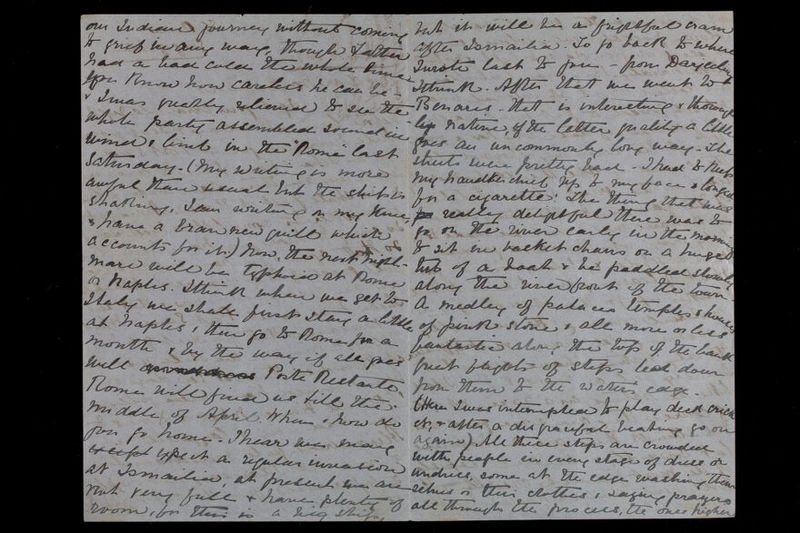 our Indian journey without coming
to grief in any way, though
had a bad cold the whole time
you know how careless he can be -
& I was greatly relieved to see the
whole party assembled sound in
wind & limb in the "Rome" last
Saturday. (My writing is more
awful than usual but the ship is
shaking, I am writing on my knee,
& have a bran new quill which
accounts for it) Now, the next night-
mare will be typhoid at Rome
or Naples. I think when we get to
Italy we shall first stay a little
at Naples, & then go to Rome for a
month & by the way if all goes
well Poste Restante
Rome will find us till the
middle of April. When & how do
you go home. I hear was many
except expect a regular invasion
at Ismailia, at present we are
not very full & have plenty of
room, for this is a big ship,
but it will be a frightful cram
after Ismailia. To go back to where
I wrote last to you - from Darjeeling
I think. After that we went to
Benares. That is interesting & though
nature, of the latter quality a little
goes an uncommonly long way. The
streets were pretty bad. I had to keep
my handkerchief up to my face & longed
for a cigarette. The thing that was
really delightful there was to
go on the river early in the morning
& sit in basket chairs on a huge
tub of a boat & be paddled slowly
along the river front of the town.
A medley of palaces temples & houses
of pink stone & all more or less
fantastic along the top of the bank
great flights of steps lead down
from them to the water's edge.
(Here I was interrupted to play deck cricket
&, after a disgraceful beating go on
again) All these steps are crowded
with people in every stage of dress or
undress, some at the edge washing them
selves or their clothes, & saying prayers
all through the process, the ones higher